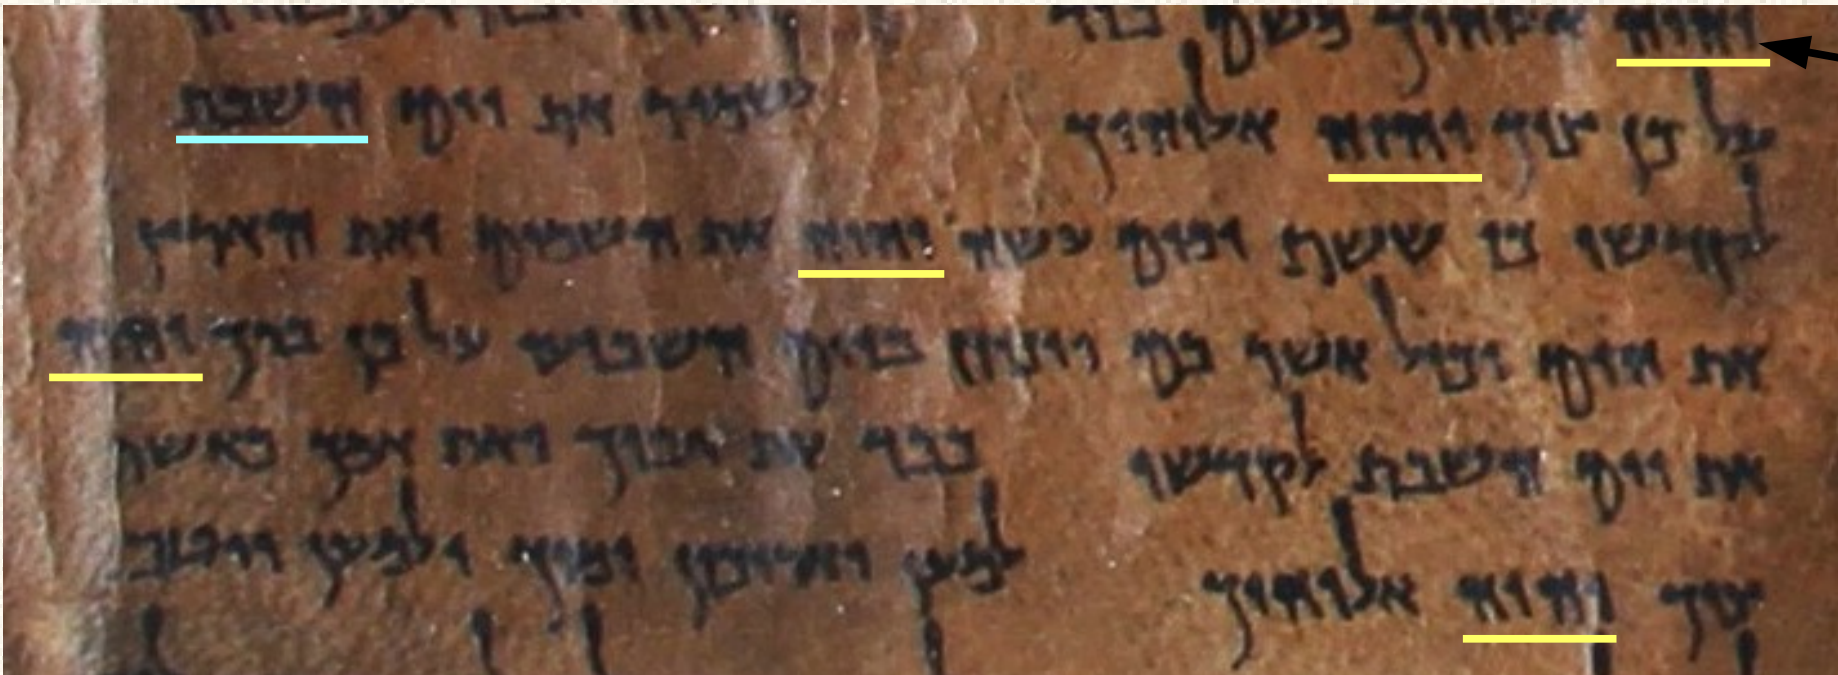 יהוה אלוהיך משם ביד חזקה ובזרוע נטויה
על כן צוך יהוה אלוהיך לשמור את יום השבת
לקדשו כי ששת ימים עשה יהוה את השמים ואת הארץ
את הים וכול אשר בם וינוח ביום השביעי על כן ברך יהוה
את יום השבת לקדשו כבד את אביך ואת אמך כאשר
צוך יהוה אלוהיך למען יאריכון ימיך ולמען ייטב